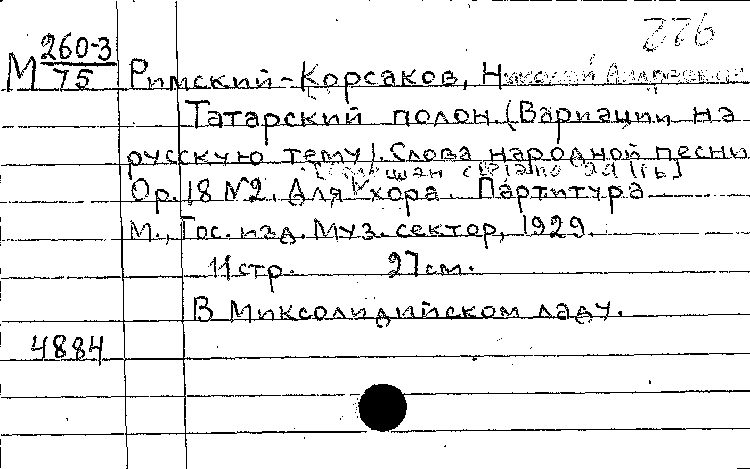 276
М 260-3/75 Римский-Корсаков, Николай Андреевич
Татарский полон. (Вариации на
русскую тему). Слова народной песни
Op. 18 №2. Для хора. Партитура
М., Гос. изд. Муз. сектор, 1929.
11 стр. 27 см.
В Миксолидийском ладу.
4884